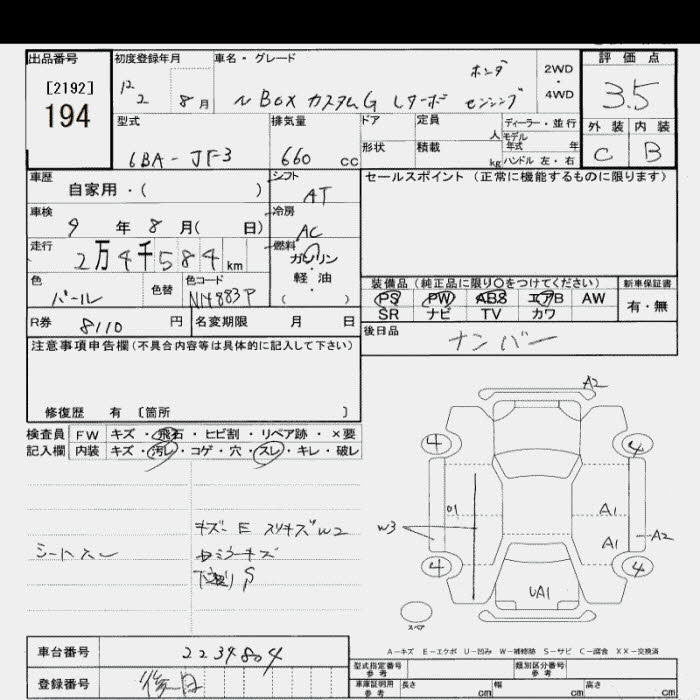 出品番号
[2192]
194
初度登録年月
12/2 8月
車名・グレード
ホンダ
N BOX カスタムG Lターボ センシング
2WD・4WD
評価点
3.5
外装 内装
C B
型式
6BA-JF3
排気量
660 cc
ドア
形状
定員 人
積載 kg
ディーラー・並行
モデル年式 年
ハンドル 左・右
車歴
自家用・( )
シフト
AT
車検
9年8月( 日)
冷房
AC
走行
2万4千584km
燃料
ガソリン
軽・油
( )
色
パール
色替
色コード
NH883P
R券 8110円
名変期限 月 日
セールスポイント(正常に機能するものに限ります)
装備品(純正品に限り○をつけてください)
PS PW ABS エアB AW
SR ナビ TV カワ
新車保証書
有・無
後日品
ナンバー
注意事項申告欄(不具合内容等は具体的に記入して下さい)
修復歴 有〔箇所 〕
検査員記入欄
FW キズ・飛石・ヒビ割・リペア跡・×要
内装 キズ・汚レ・コゲ・穴・スレ・キレ・破レ
シートスレ
キズE スリキズW2
下廻りS
A2
4 4
W3
01
A1
A1
A2
4 4
UA1
スペア
A-キズ E-エクボ U-凹み W-補修跡 S-サビ C-腐食 XX-交換済
車台番号 2234804
登録番号
型式指定番号
参考
類別区分番号
参考
車庫証明用
参考
長さ cm 幅 cm 高さ cm